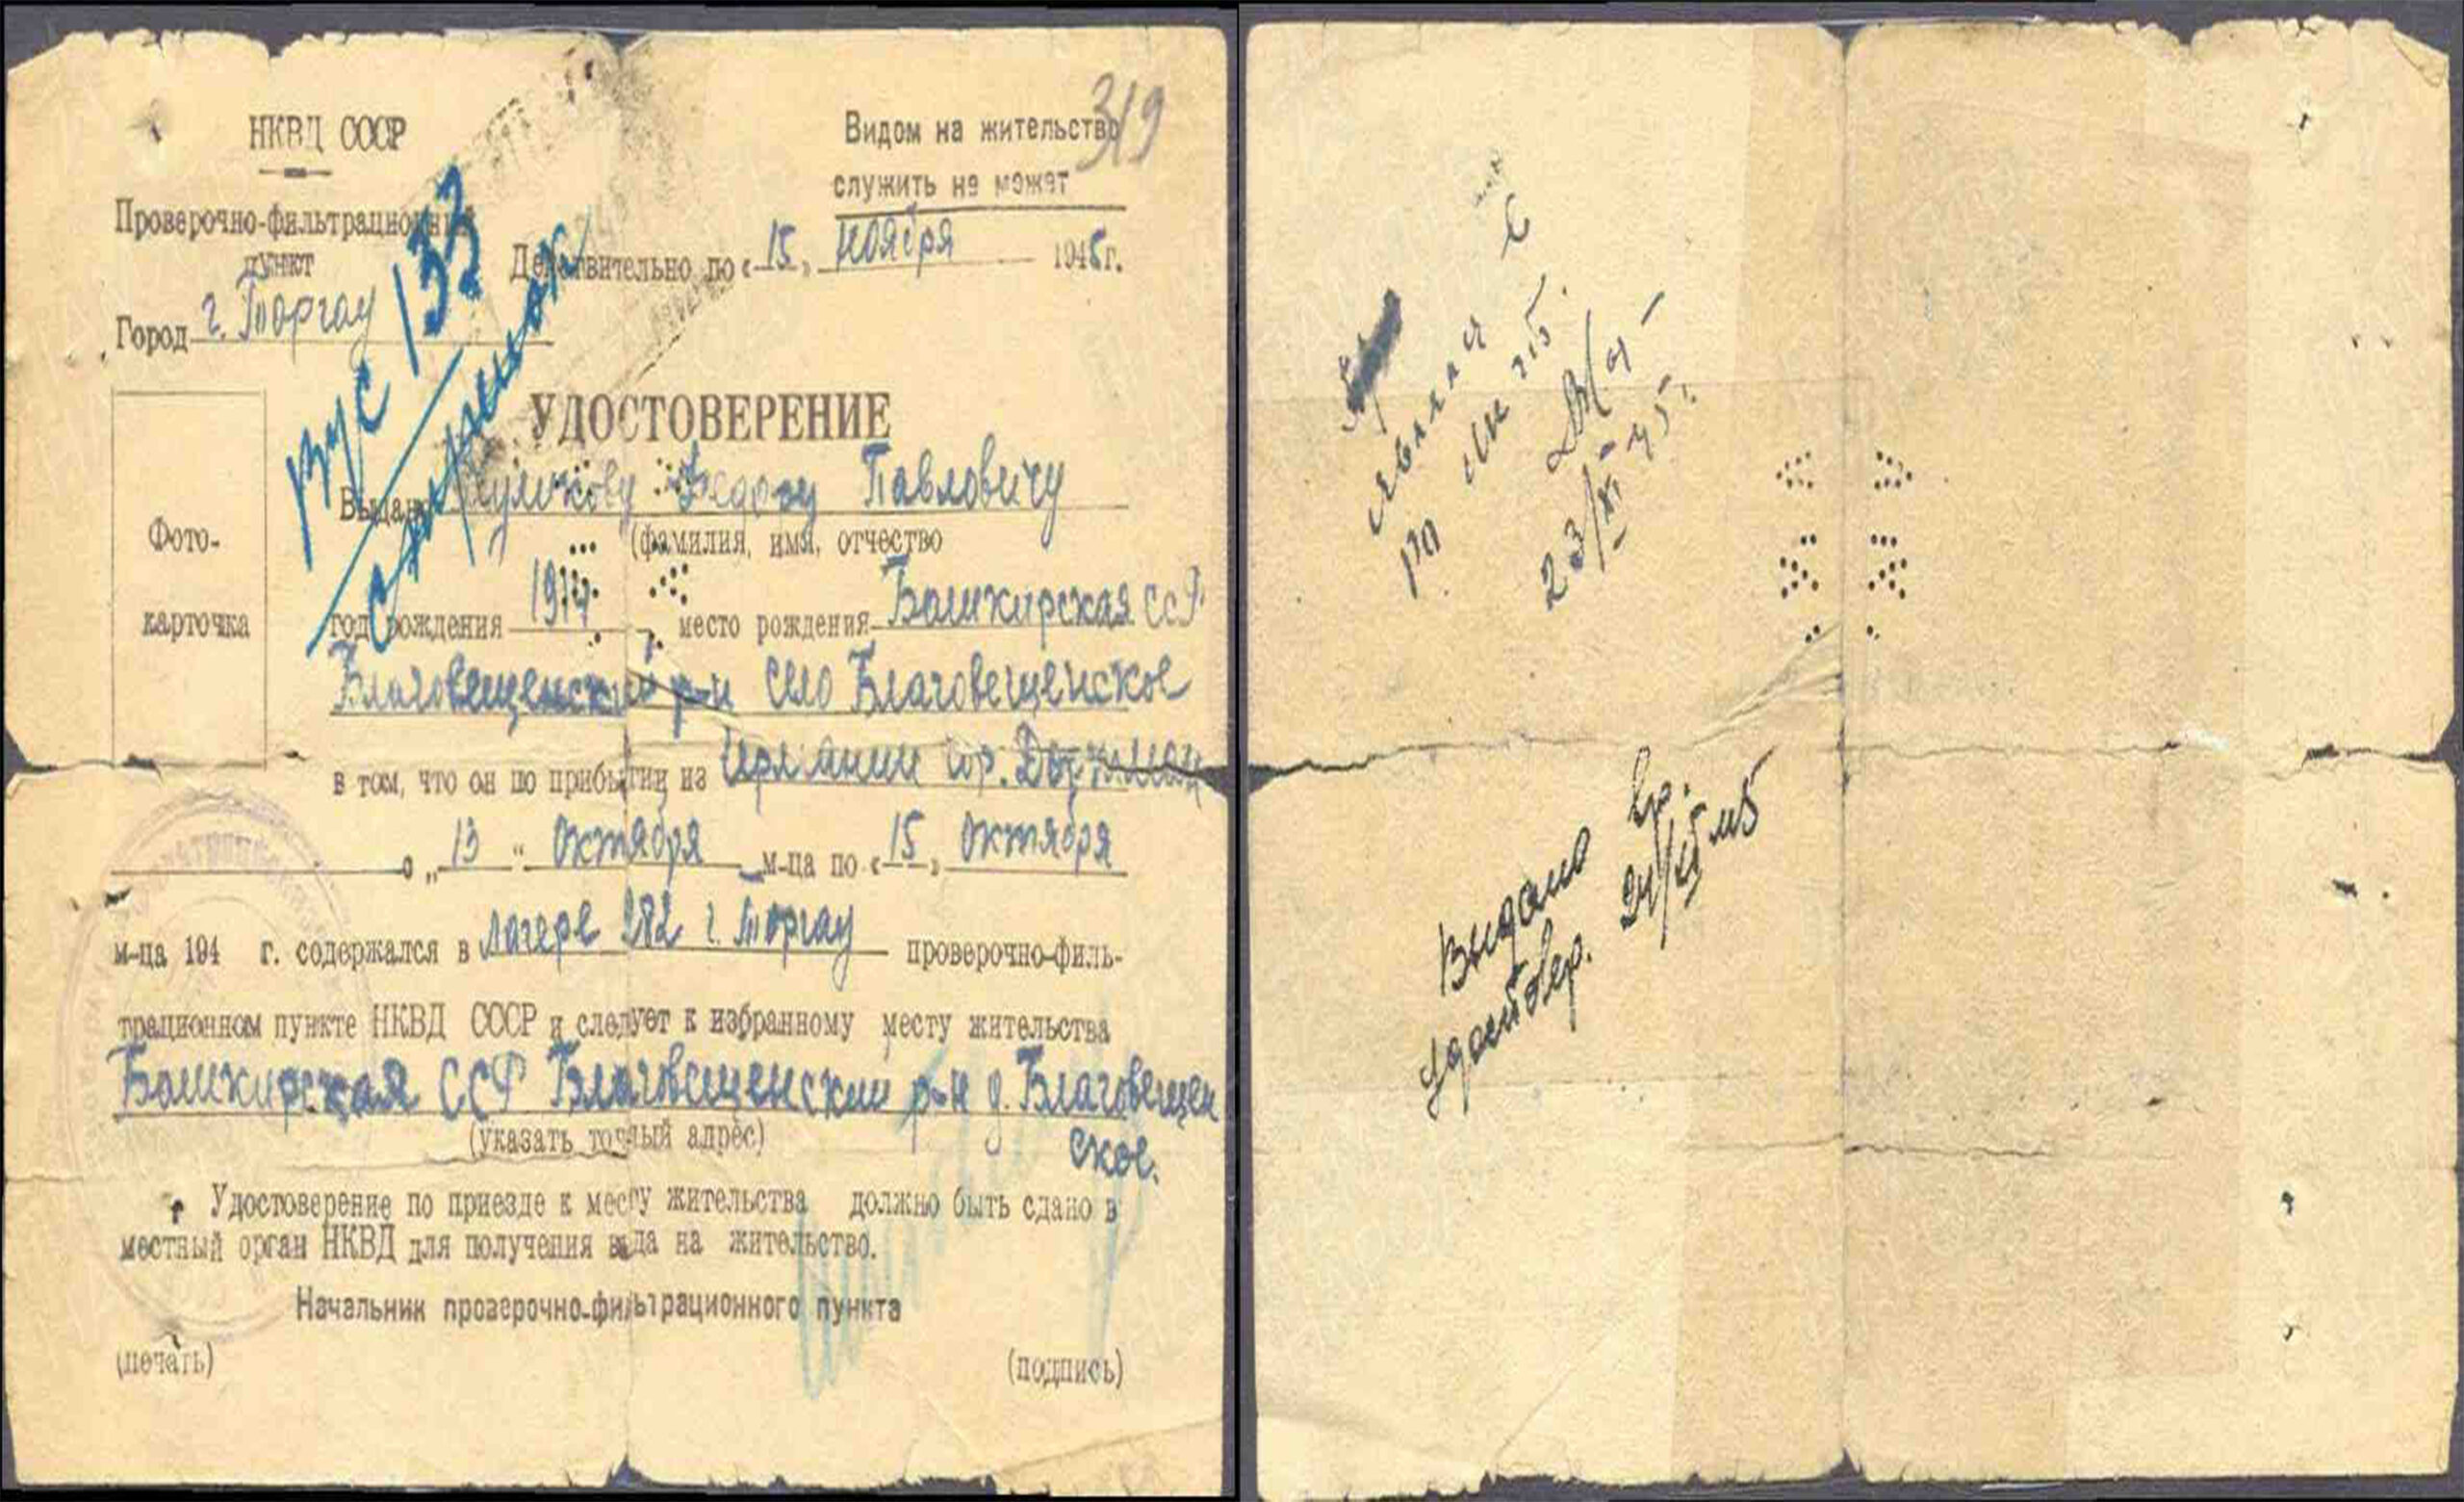 НКВД СССР
Проверочно-фильтрационный
пункт
Город г. Торгау
319
Видом на жительство
служить не может
Действительно по «15» ноября 1945 г.
ВУС 133
УДОСТОВЕРЕНИЕ
Фото-
карточка
Выдано Куликову Федору Павловичу
(фамилия, имя, отчество
год рождения место рождения Башкирская ССР
Благовещенский р-н село Благовещенское
в том, что он по прибытии из гор.
с „13" октября м-ца по «15» октября
м-ца 194 г. содержался в лагере 282 г. Торгау проверочно-филь-
трационном пункте НКВД СССР и следует к избранному месту жительства
Башкирская ССР Благовещенский р-н д. Благовещен
ское.
(указать точный адрес)
Удостоверение по приезде к месту жительства должно быть сдано в
местный орган НКВД для получения вида на жительство.
Начальник проверочно-фильтрационного пункта
(печать) (подпись)
23/XI-45
Выдано вр.
удостовер. 24/XI 45